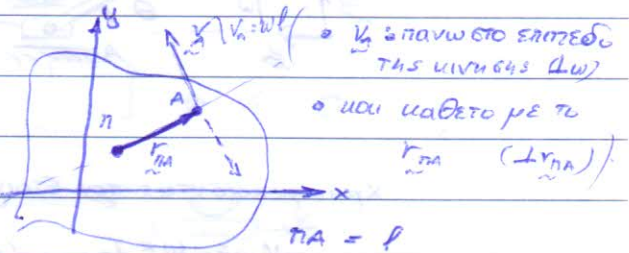 y
v_n | v_n = ωl
• v_n : πανω στο επιπεδο
της κινησης (⊥ω)
A
• και καθετο με το
Π
r_ΠΑ
r_ΠΑ (⊥ r_ΠΑ)
x
ΠΑ = l